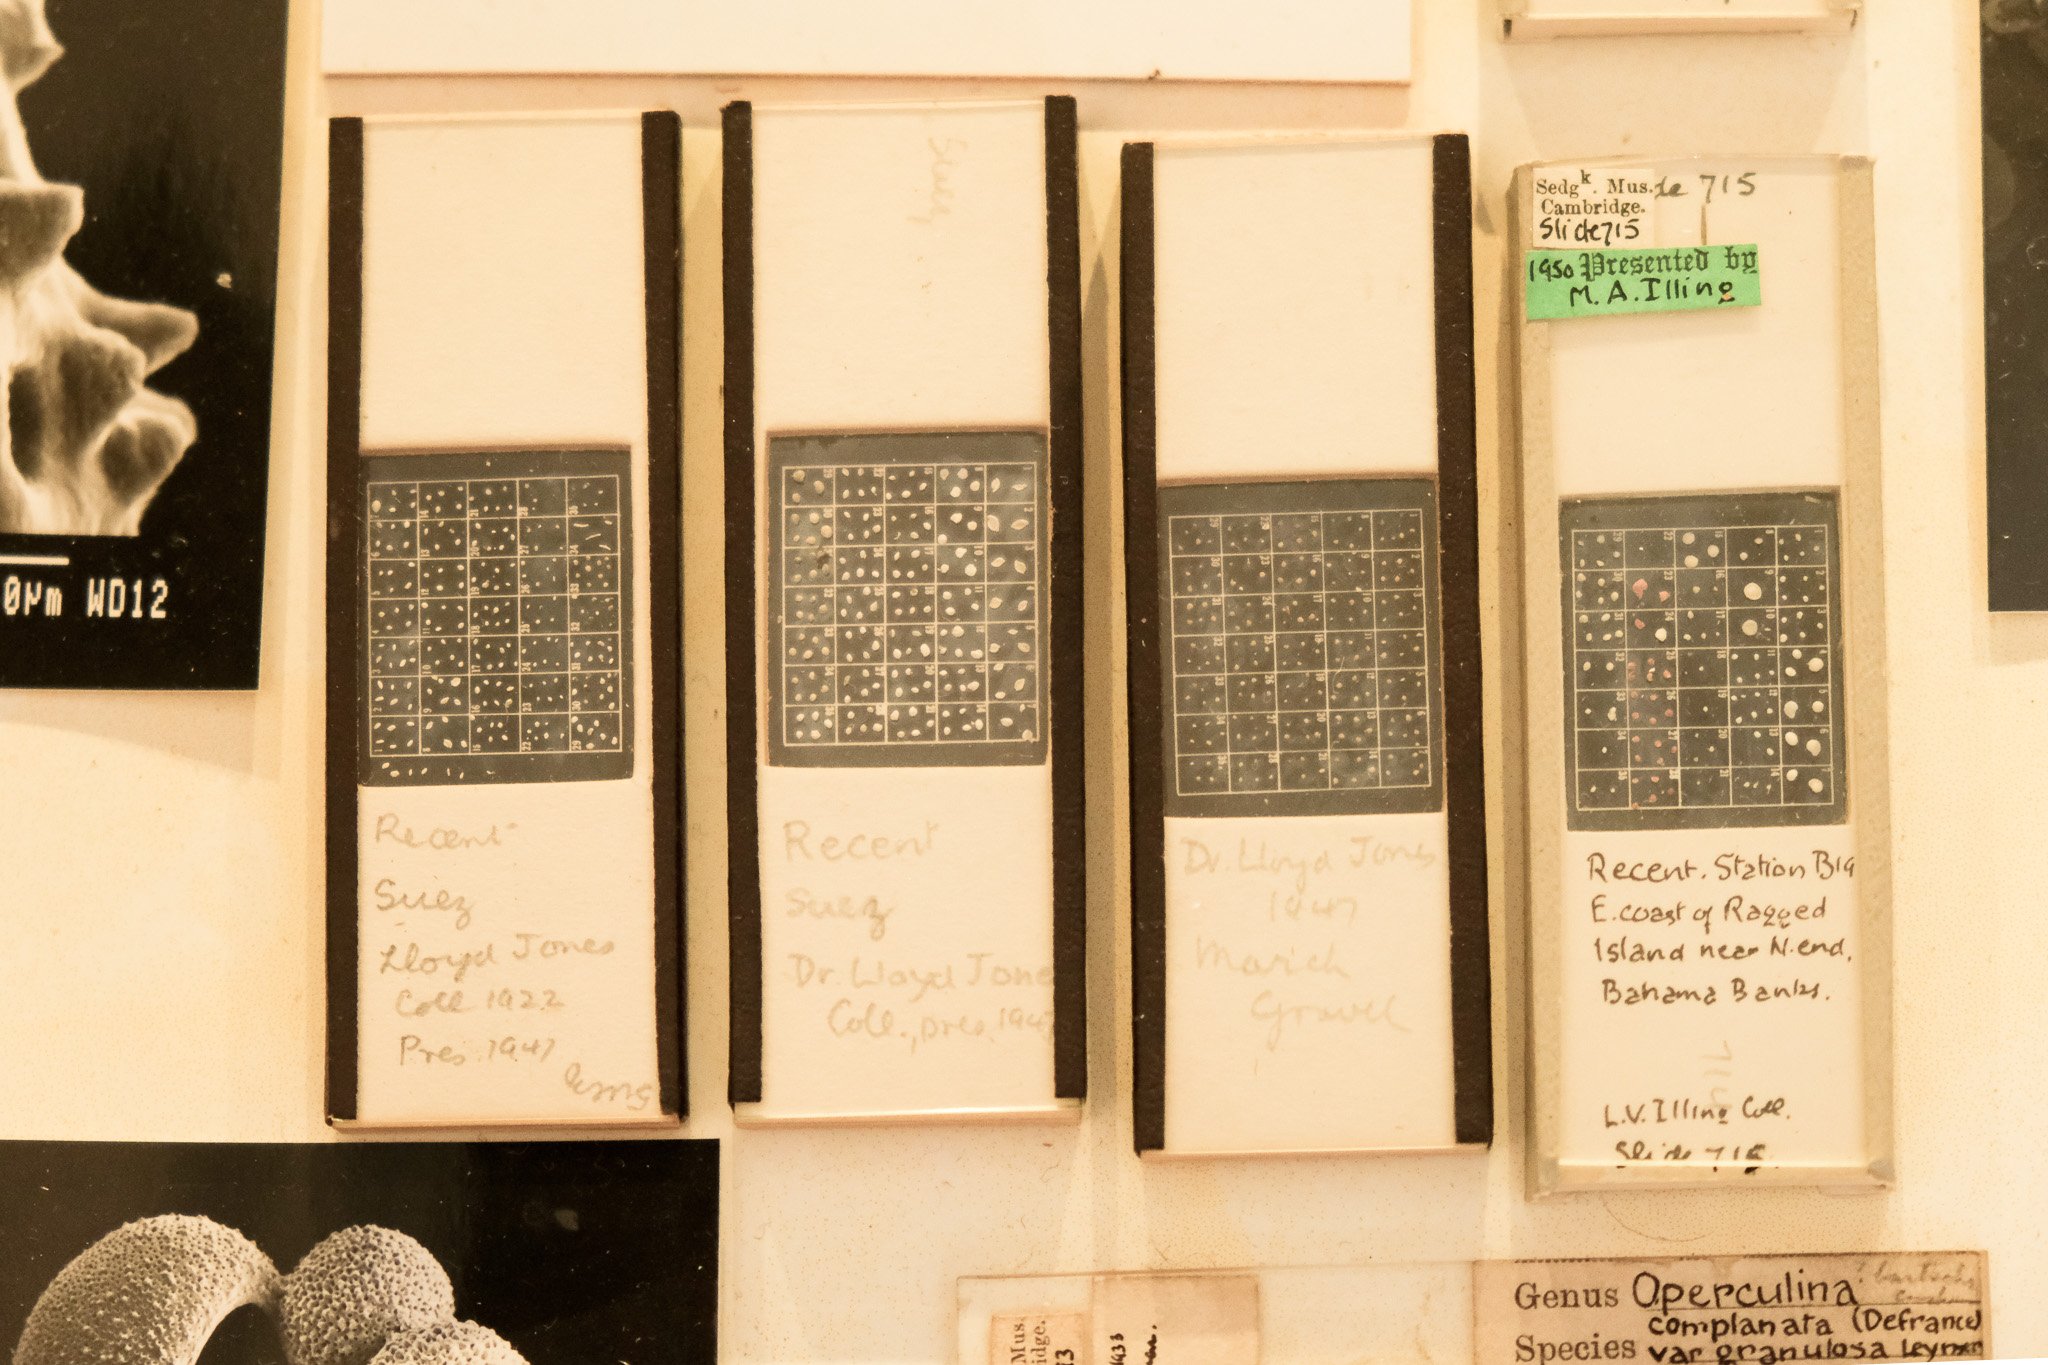 0µm WD12
Recent
Suez
Lloyd Jones
Coll 1922
Pres. 1947
Suez
Recent
Suez
Dr. Lloyd Jone
Coll., pres. 1947
Dr. Lloyd Jones
1947
Gravel
Sedgk. Mus.
Cambridge.
Slide 715
715
1950 Presented by
M. A. Illing
Recent. Station B19
E. coast of Ragged
Island near N. end,
Bahama Banks.
L.V. Illing Coll.
Slide 715.
Mus.
idge.
Genus Operculina
complanata (Defrance)
Species var granulosa Leymer